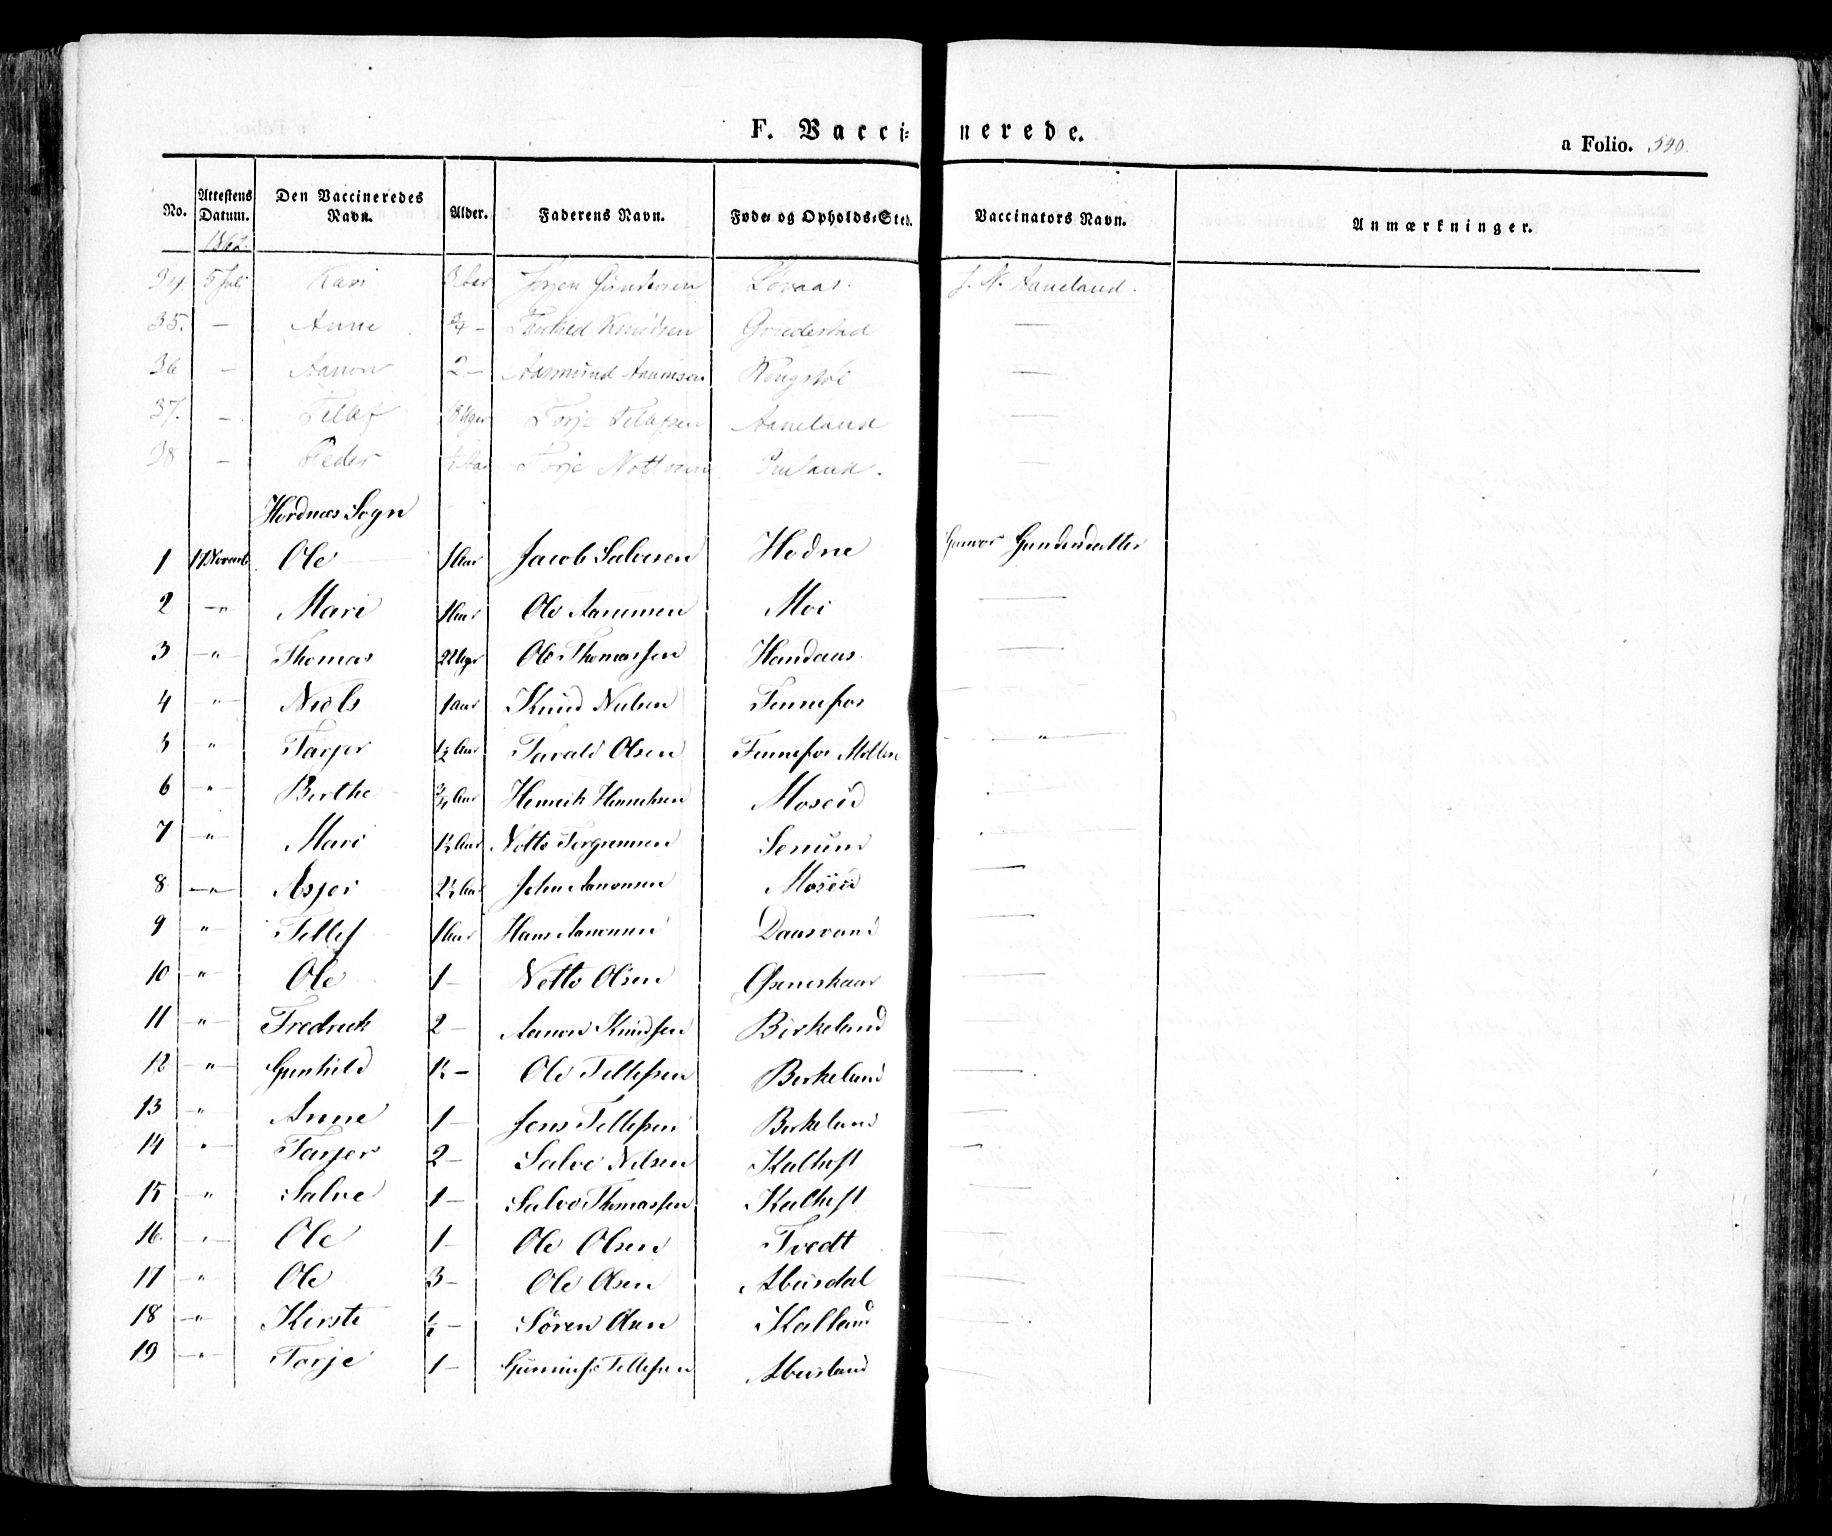 F. Vacci= nerede.
a Folio. 540.
No. Attestens Datum. Den Vaccineredes Navn. Alder. Faderens Navn. Føde= og Opholds=Sted. Vaccinators Navn. Anmærkninger.
1862.
34 5 Juli Kari 3 Aar Jørgen Gundersen Løvaas. J. N. Aaneland.
35. — Anne 3/4 — Terkild Knudsen Grædestad —
36 — Aanon 2 — Aasmund Aanonsen Kongstøl —
37. — Tellef 18 Uger Torje Tellefsen Aaneland —
38 — Peder Aar Torje Nottosen —
Hordnæs Sogn
1 11 Novemb Ole 1 Aar Jacob Salvesen Hodne Gunvor Gundersdatter
2 —"— Mari 1 Aar Ole Aanonsen Moi —
3 —"— Thomas 22 Uger Ole Thomassen Handaas. —
4 —"— Niels 1 Aar Knud Nielsen Fennefos —
5 " Tarjer 1½ Aar Tarald Olsen Fennefos Mollen — " —
6 —"— Berthe 3/4 Aar Henrik Henriksen Moseid
7 —"— Mari 1½ Aar Notto Torgrimsen Senum —
8 —"— Asjer 2½ Aar John Aanonsen Moseid —
9 —"— Tellef 1 Aar Hans Aanonsen Daasvand —
10 —"— Ole 1 — Notto Olsen —
11 —"— Fredrick 2 — Aanon Knudsen Birkeland —
12 —"— Gunhild 1½ — Ole Tellefsen Birkeland —
13 —"— Anne 1 — Jens Tellefsen Birkeland —
14 " — Tarjer 2 — Salve Nilsen Kalheft —
15 —"— Salve 1 — Salve Thomassen Kalheft —
16. —"— Ole 1 — Ole Olsen Tvedt —
17 —"— Ole 3 — Ole Olsen Abusdal —
18 —"— Kirsti ½ — Sören Olsen Kalland —
19 —"— Torje 1 — Gunnuf Tellefsen Abusland —